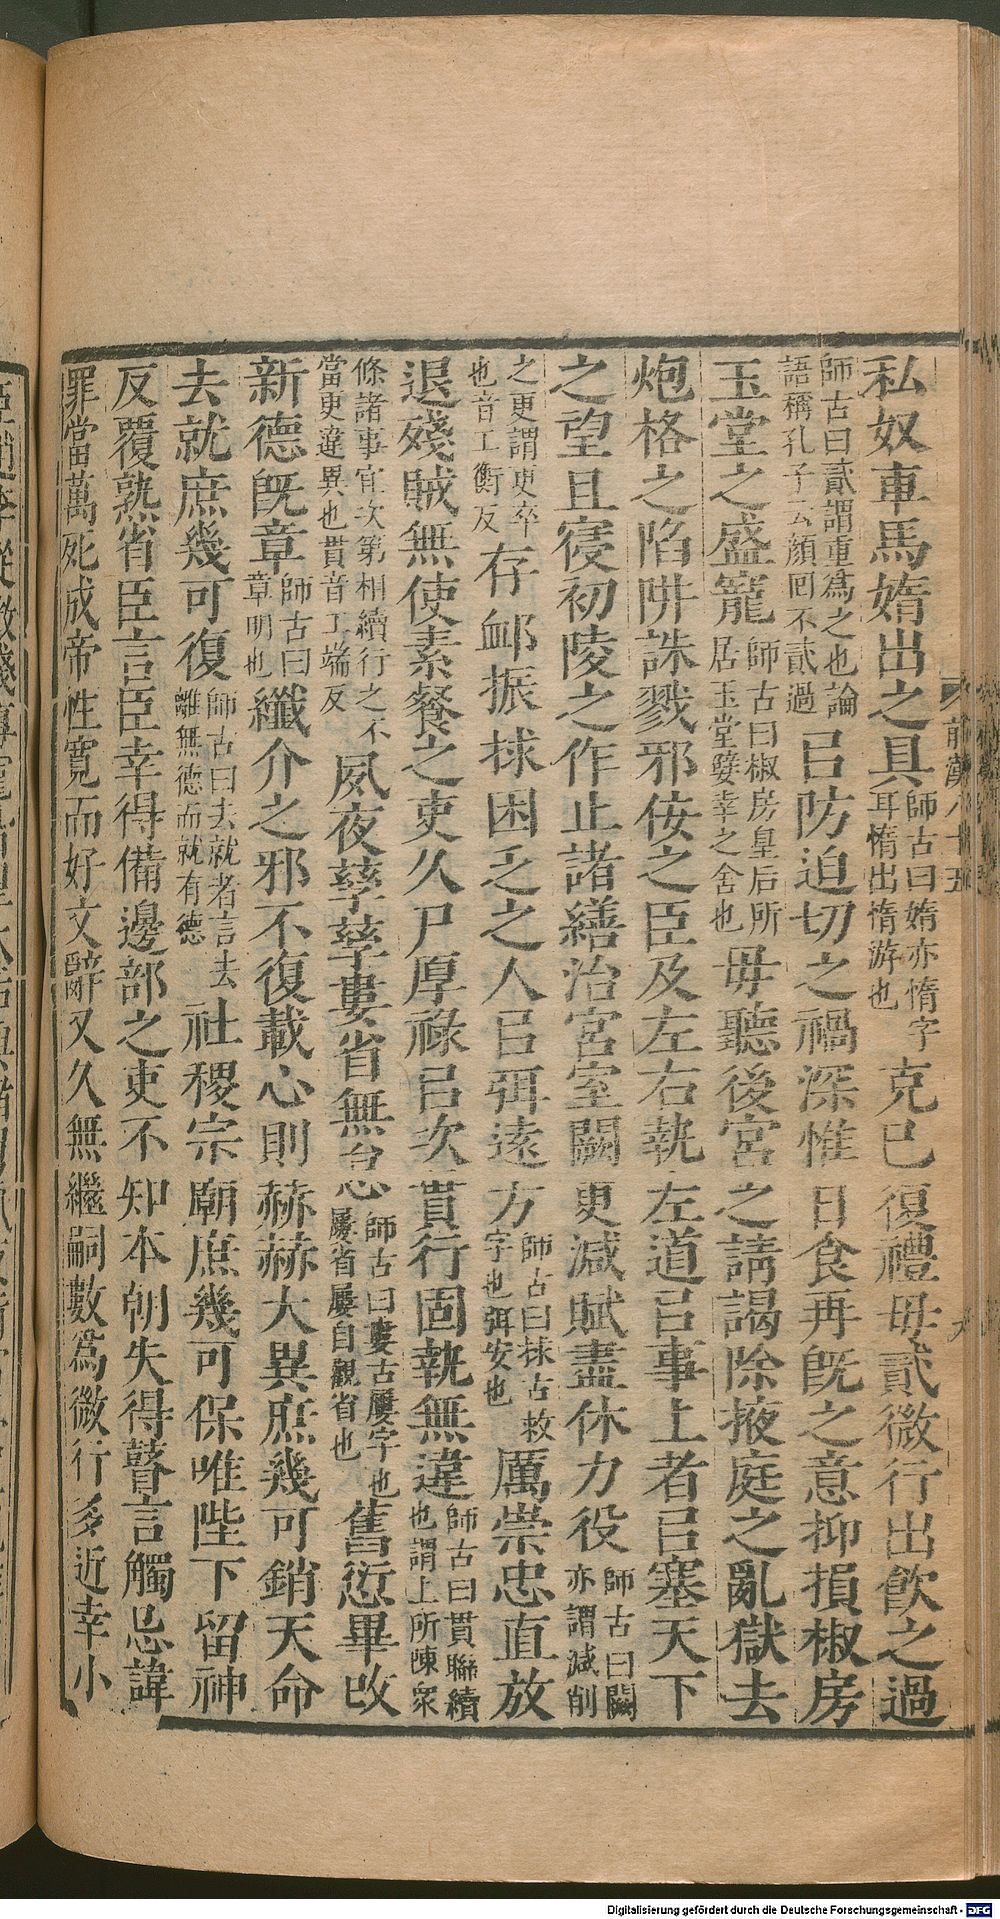 私奴車馬媠出之具師古曰媠亦惰字耳惰出惰游也克已復禮毋貳微行出飲之過
師古曰貳謂重為之也論語稱孔子云顔回不貳過㠯防迫切之禍深惟日食再旣之意抑損椒房
玉堂之盛寵師古曰椒房皇后所居玉堂嬖幸之舍也毋聽後宮之請謁除掖庭之亂獄去
炮格之陷阱誅戮邪佞之臣及左右執左道㠯事上者㠯塞天下
之望且寑初陵之作止諸繕治宮室闕更減賦盡休力役師古曰闕亦謂減削
之更謂更卒也音工衡反存䘏振捄困乏之人㠯弭遠方師古曰捄古救字也弭安也厲崇忠直放
退殘賊無使素餐之吏久尸厚祿㠯次貫行固執無違師古曰貫聯續也謂上所陳衆
條諸事宜次第相續行之不當更違異也貫音工端反夙夜孳孳婁省無怠師古曰婁古屢字也屢省屢自觀省也舊愆畢改
新德旣章師古曰章明也纖介之邪不復載心則赫赫大異庶幾可銷天命
去就庶幾可復師古曰去就者言去離無德而就有德社稷宗廟庶幾可保唯陛下留神
反覆熟省臣言臣幸得備邊部之吏不知本朝失得瞽言觸忌諱
罪當萬死成帝性寬而好文辭又久無繼嗣數為微行多近幸小
前漢八十五
九
Digitalisierung gefördert durch die Deutsche Forschungsgemeinschaft - DFG